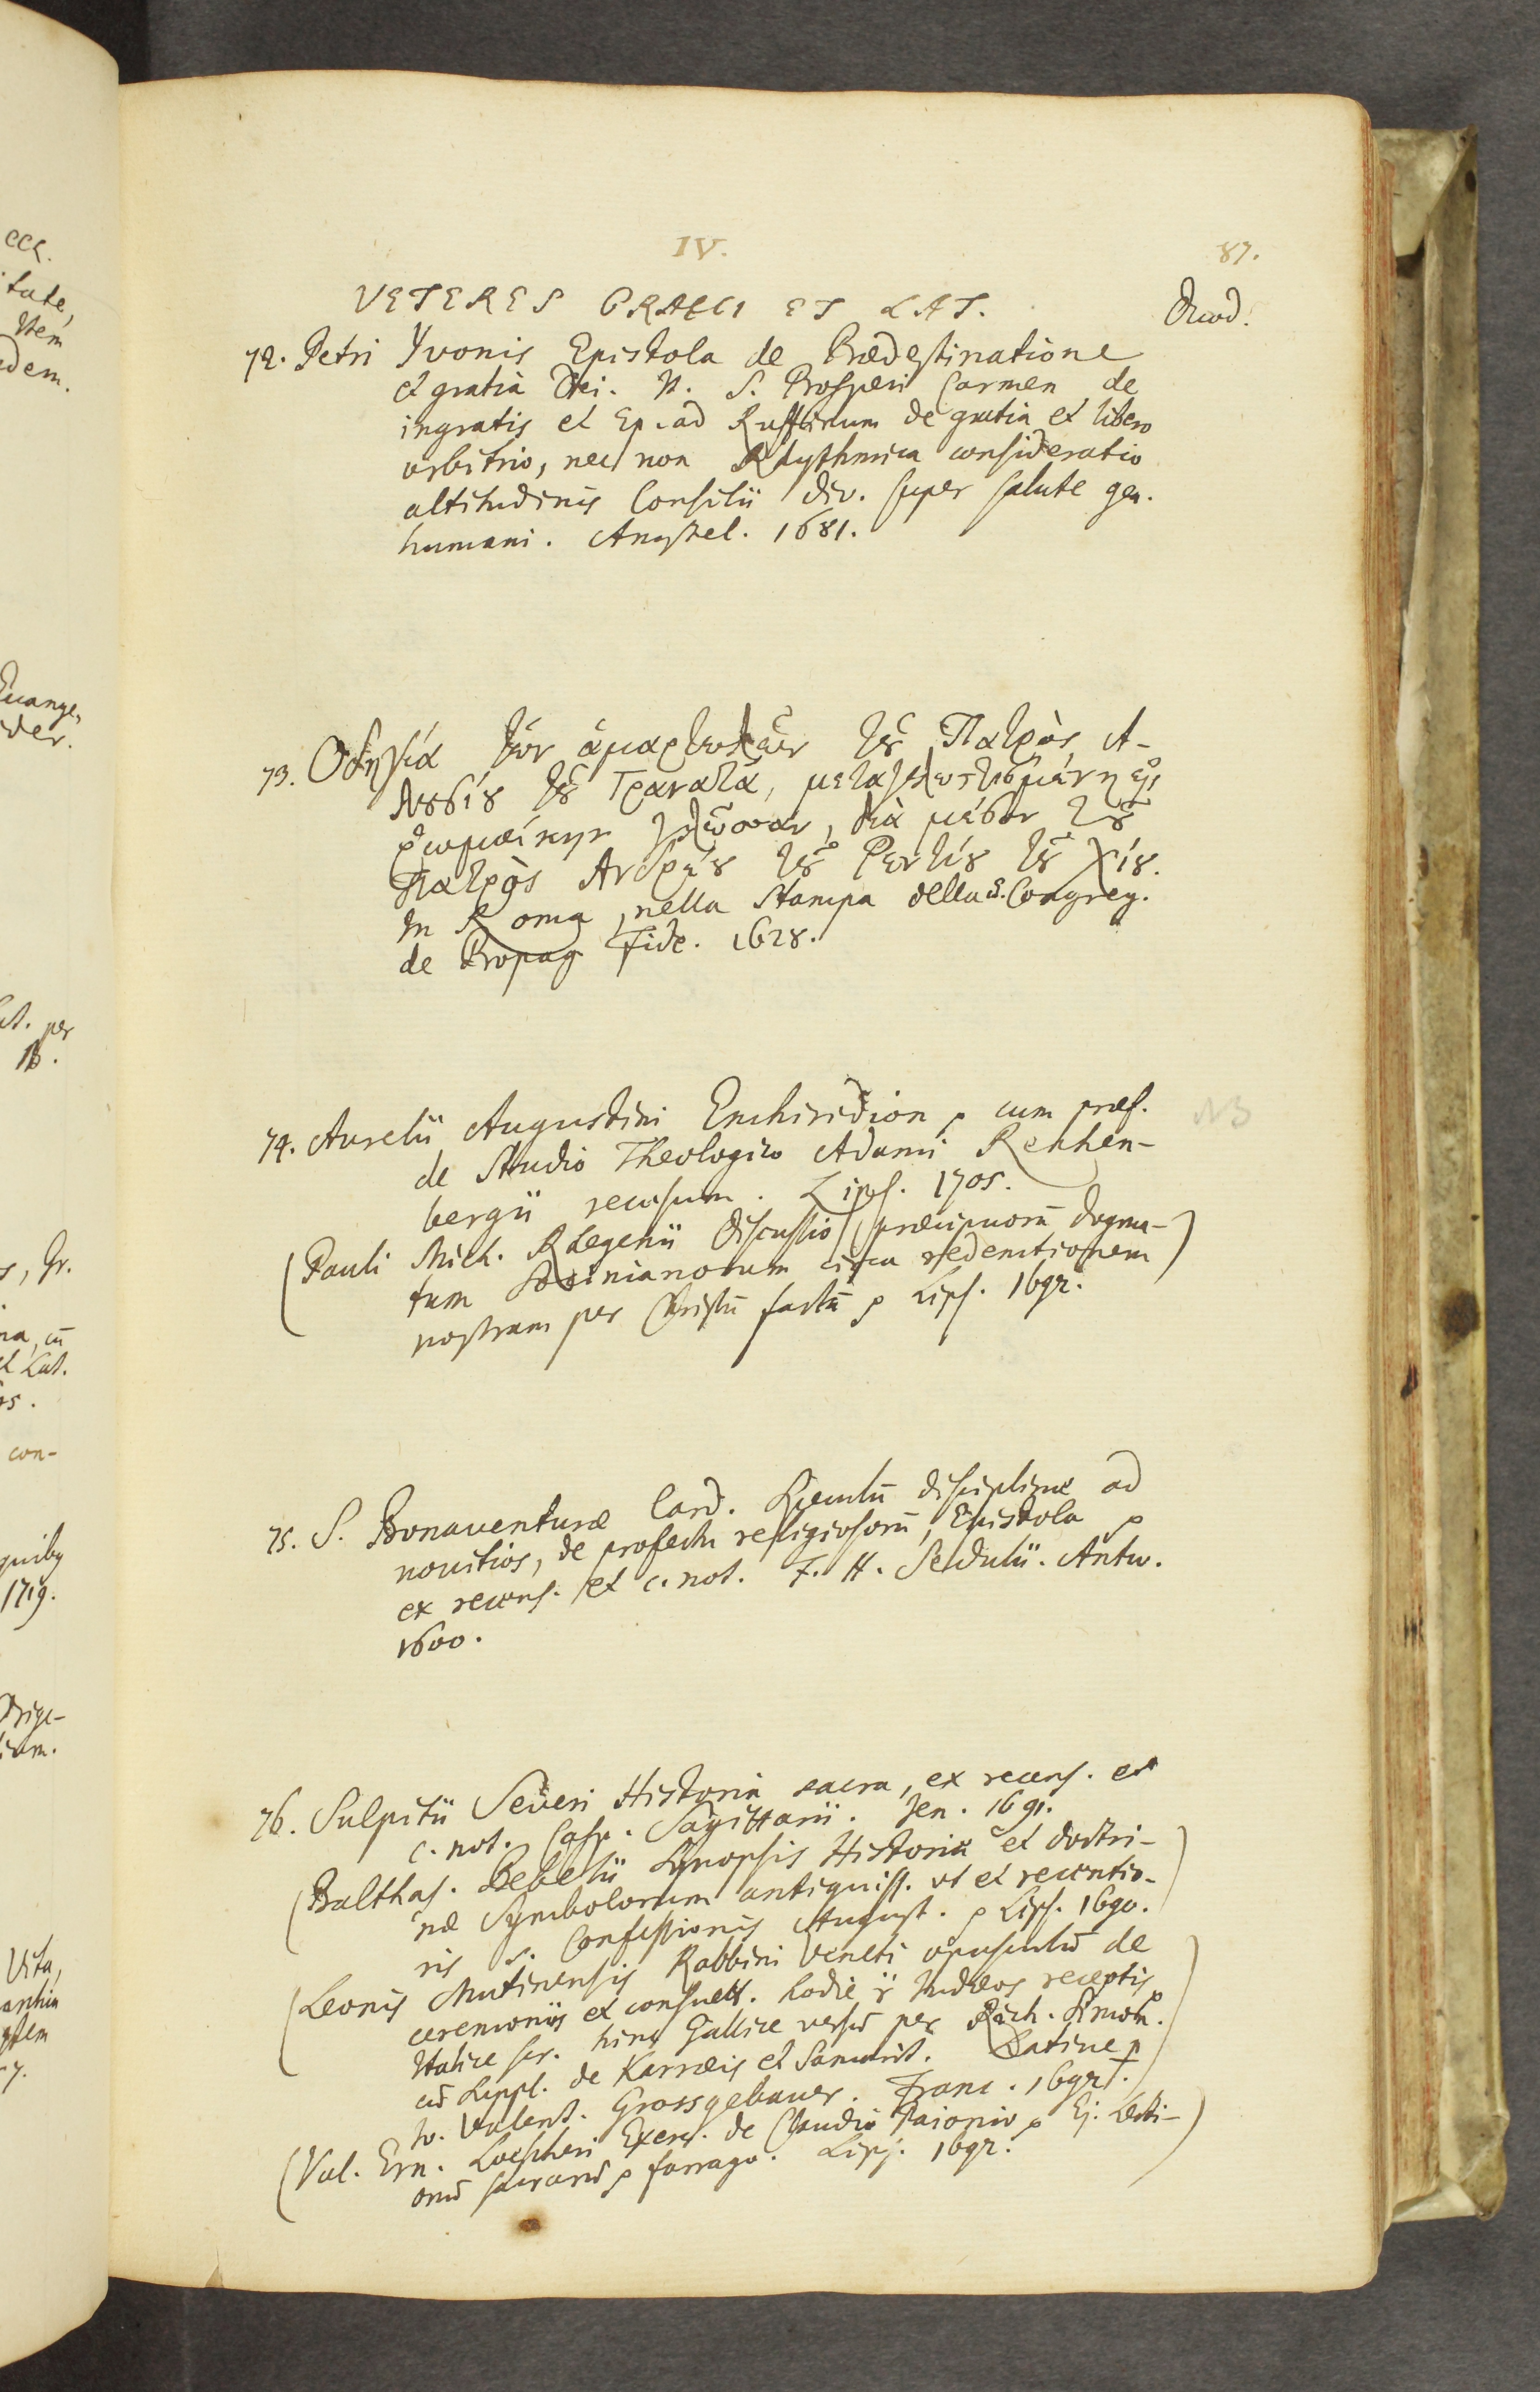 IV.
87.
VETERES GRAECI ET LAT.
Duod.
72. Petri Yvonis Epistola de Prædestinatione
et gratia Dei. It. S. Prosperi Carmen de
ingratis et Ep. ad Ruffinum de gratia et libero
arbitrio, nec non Rhythmica consideratio
altitudinis Consilii div. super salute gen.
humani. Amstel. 1681.
73. Οδηγία τῶν ἁμαρτωλῶν τȣ͂ Πατρὸς Α-
λοβίȣ τȣ͂ Γρανατᾶ, μεταγλωττισμένη εἰς
ῥωμαίκην γλῶσσαν, διὰ μέσον τȣ͂
Πατρὸς Ανδρέȣ τȣ͂ Ρεντίȣ τȣ͂ Χίȣ.
In Roma, nella Stampa della S. Congreg.
de Propag Fide. 1628.
74. Aurelii Augustini Enchiridion p cum præf.
de Studio Theologico Adami Rechen-
bergii recusum. Lips. 1705.
NB
(Pauli Mich. Rhegenii Discussio præcipuorū dogma-)
tum Socinianorum circa redemtionem
nostram per Christū factā p Lips. 1692.
75. S. Bonaventuræ Card. Speculū disciplinæ ad
novitios, de profectu religiosorū, Epistola p
ex recens. et c. not. F. H. Sedulii. Antw.
1600.
76. Sulpitii Severi Historia sacra, ex recens. et
c. not. Casp. Sagittarii. Jen. 1691.
(Balthas. Bebelii Synopsis Historiæ et doctri-
næ Symbolorum antiquiss. ut et recentio-
ris s. Confessionis August. p Lips. 1690.)
(Leonis Mutinensis Rabbini Veneti opusculū de
ceremoniis et consuett. hodie Judæos receptis p
Italice scr. hinc Gallice versū per Rich. Simon.
cū Suppl. de Karræis et Samarit. Latine p
Jo. Valent. Grossgebauer. Franc. 1693.)
(Val. Ern. Loescheri Exerc. de Claudii Paionio p Ej. Lecti-
onū sacrarū p farrago. Lips. 1692.)